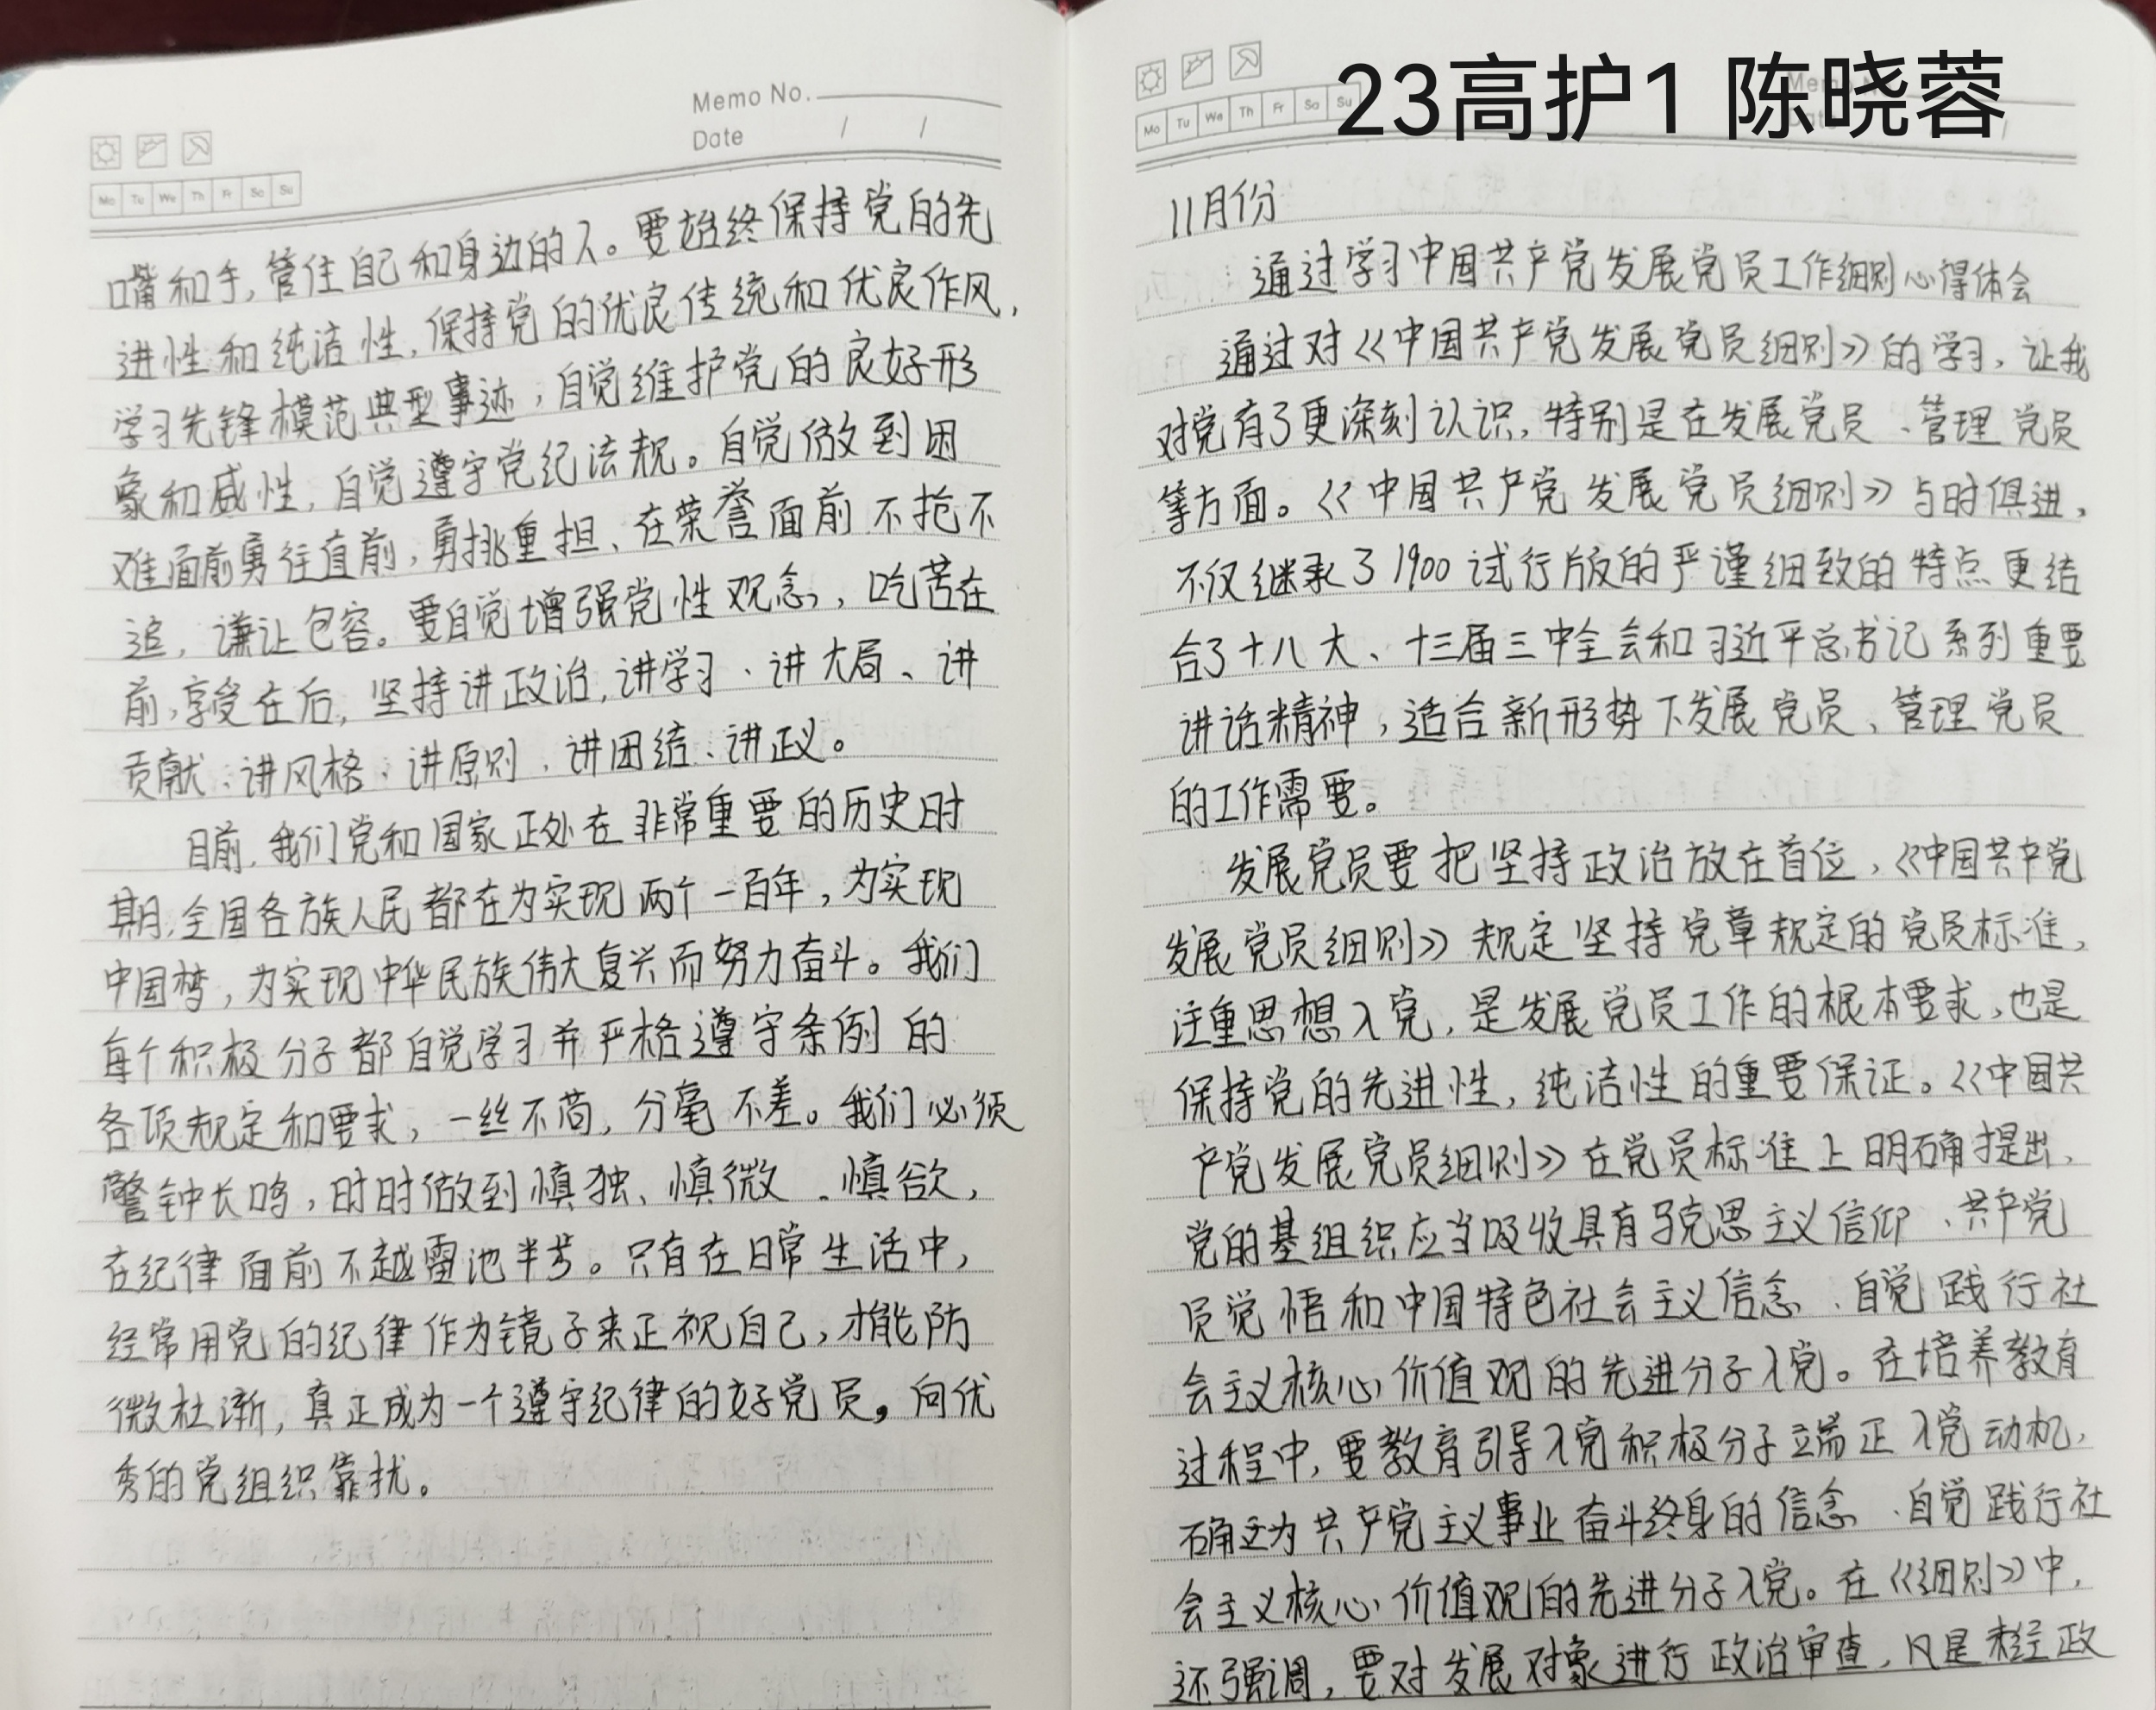 Memo No.
Date / /
Mo Tu We Th Fr Sa Su
口嘴和手,管住自己和身边的人。要始终保持党的先
进性和纯洁性,保持党的优良传统和优良作风,
学习先锋模范典型事迹,自觉维护党的良好形
象和威性,自觉遵守党纪法规。自觉做到困
难面前勇往直前,勇挑重担、在荣誉面前不抢不
追,谦让包容。要自觉增强党性观念,吃苦在
前,享受在后,坚持讲政治,讲学习、讲大局、讲
贡献、讲风格、讲原则、讲团结、讲政义。
目前,我们党和国家正处在非常重要的历史时
期,全国各族人民都在为实现两个一百年,为实现
中国梦,为实现中华民族伟大复兴而努力奋斗。我们
每个积极分子都自觉学习并严格遵守条例的
各项规定和要求,一丝不苟,分毫不差。我们必须
警钟长鸣,时时做到慎独、慎微、慎欲,
在纪律面前不越雷池半步。只有在日常生活中,
经常用党的纪律作为镜子来正视自己,才能防
微杜渐,真正成为一个遵守纪律的好党员,向优
秀的党组织靠扰。
23高护1 陈晓蓉
Mo Tu We Th Fr Sa Su
11月份
通过学习中国共产党发展党员工作细则心得体会
通过对《中国共产党发展党员细则》的学习,让我
对党有了更深刻认识,特别是在发展党员、管理党员
等方面。《中国共产党发展党员细则》与时俱进,
不仅继承了1900试行版的严谨细致的特点更结
合了十八大、十三届三中全会和习近平总书记系列重要
讲话精神,适合新形势下发展党员、管理党员
的工作需要。
发展党员要把坚持政治放在首位,《中国共产党
发展党员细则》规定坚持党章规定的党员标准,
注重思想入党,是发展党员工作的根本要求,也是
保持党的先进性,纯洁性的重要保证。《中国共
产党发展党员细则》在党员标准上明确提出,
党的基组织应当吸收具有马克思主义信仰、共产党
员觉悟和中国特色社会主义信念、自觉践行社
会主义核心价值观的先进分子入党。在培养教育
过程中,要教育引导入党积极分子端正入党动机,
确立为共产党主义事业奋斗终身的信念、自觉践行社
会主义核心价值观的先进分子入党。在《细则》中,
还强调,要对发展对象进行政治审查,凡是未经政